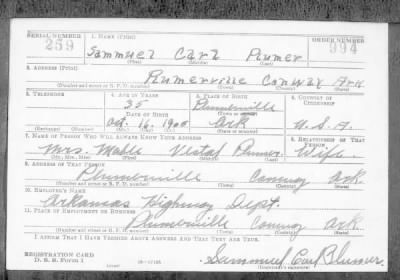 SERIAL NUMBER 1. NAME (Print) ORDER NUMBER
259 Sammuel Carl Plumer 994
(First) (Middle) (Last)
2. ADDRESS (Print)
Plumerville Conway Ark
(Number and street or R. F. D. number) (Town) (County) (State)
3. TELEPHONE 4. AGE IN YEARS 5. PLACE OF BIRTH 6. COUNTRY OF CITIZENSHIP
35 Plumerville
DATE OF BIRTH (Town or county)
Oct. 16. 1905 Ark U.S.A.
(Exchange) (Number) (Mo.) (Day) (Yr.) (State or country)
7. NAME OF PERSON WHO WILL ALWAYS KNOW YOUR ADDRESS 8. RELATIONSHIP OF THAT PERSON
Mrs. Mable Vestal Plumer. Wife.
(Mr., Mrs., Miss) (First) (Middle) (Last)
9. ADDRESS OF THAT PERSON
Plumerville Conway Ark.
(Number and street or R. F. D. number) (Town) (County) (State)
10. EMPLOYER'S NAME
Arkansas Highway Dept.
11. PLACE OF EMPLOYMENT OR BUSINESS
Plumerville Conway Ark.
(Number and street or R. F. D. number) (Town) (County) (State)
I AFFIRM THAT I HAVE VERIFIED ABOVE ANSWERS AND THAT THEY ARE TRUE.
REGISTRATION CARD
D. S. S. Form 1 16—17105 Sammuel Carl Plumer.
(Registrant's signature)